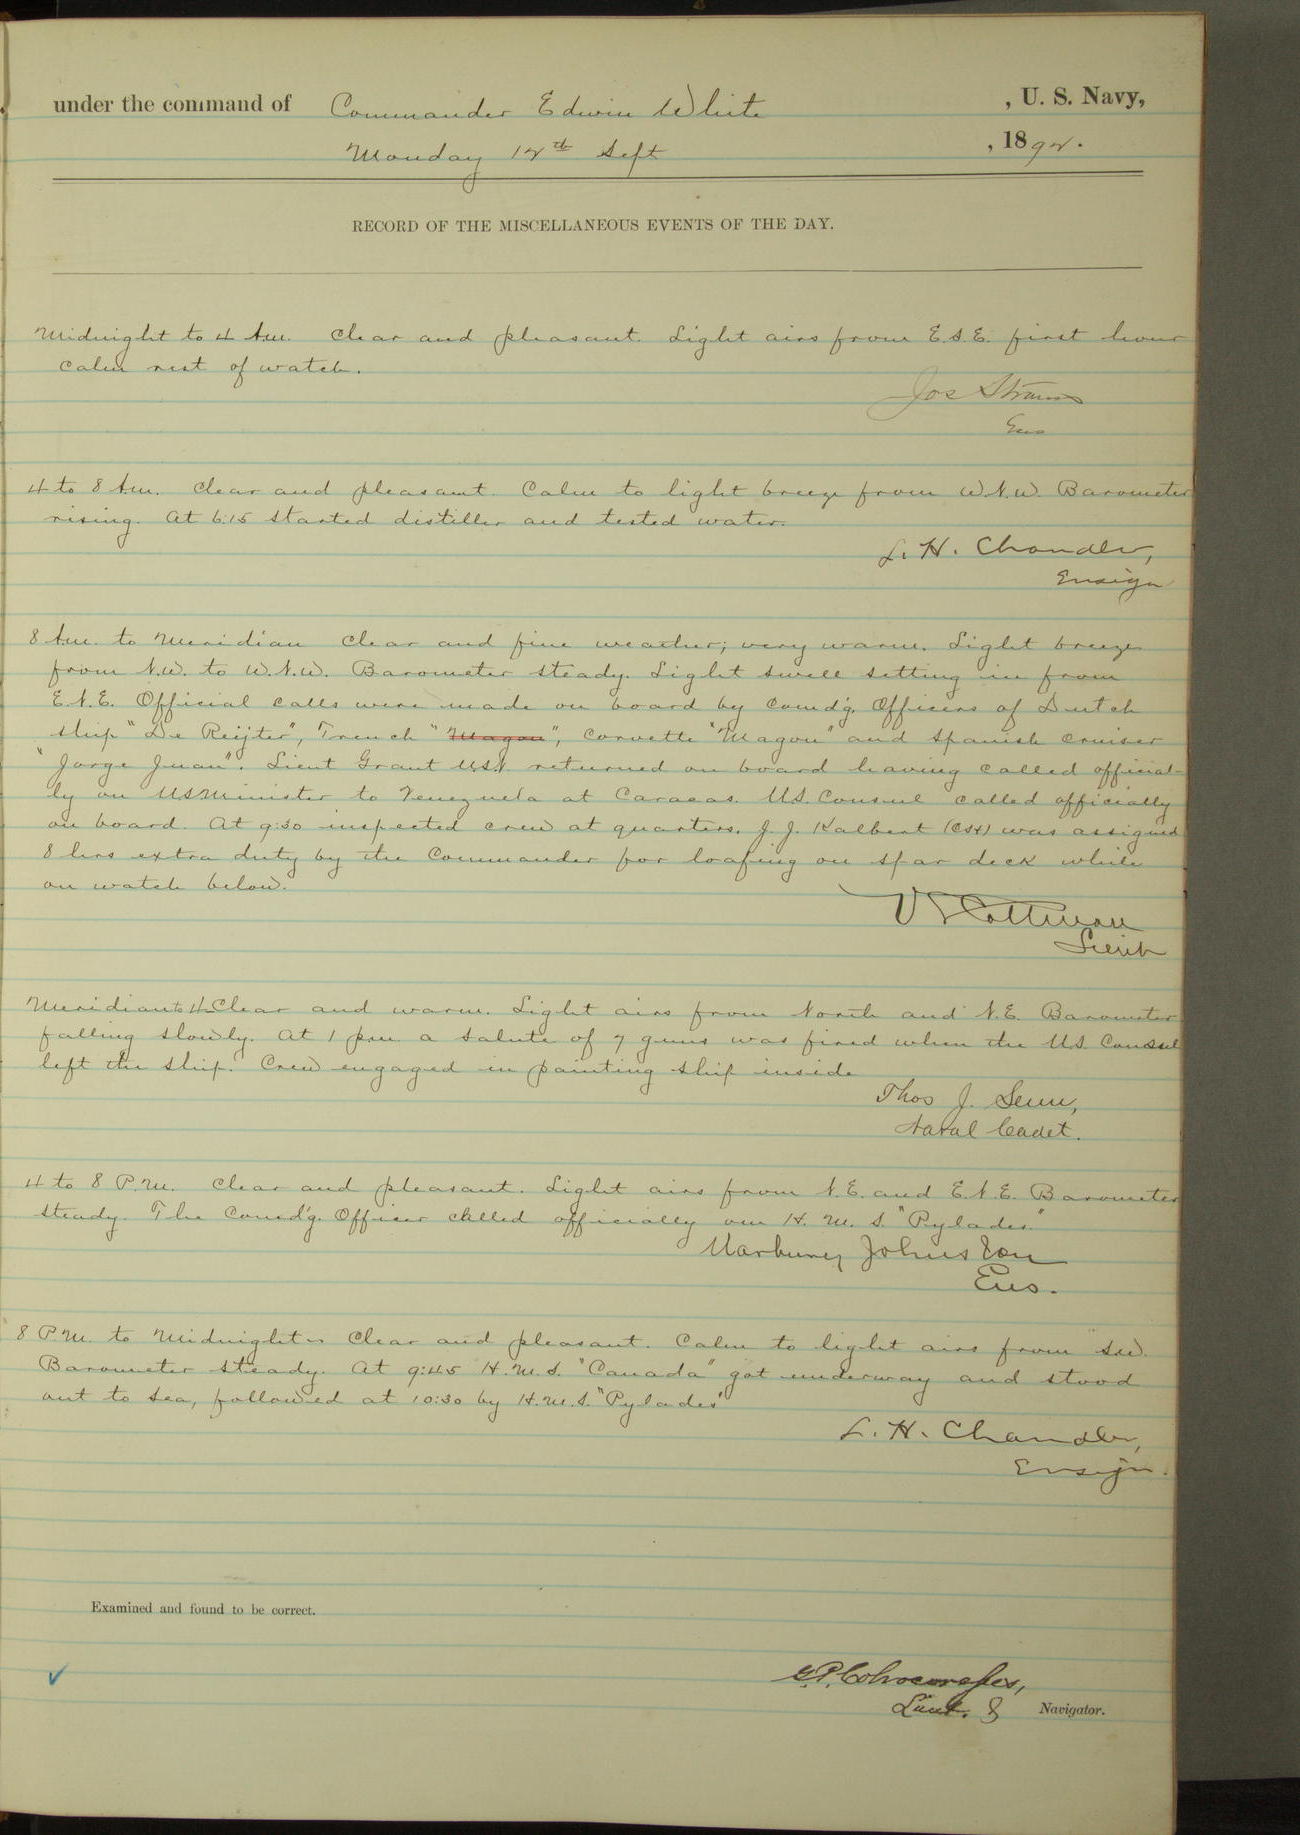 under the command of Commander Edwin White , U. S. Navy,
Monday 12th Sept , 1892.
RECORD OF THE MISCELLANEOUS EVENTS OF THE DAY.
Midnight to 4 Am. Clear and pleasant. Light airs from E.S.E. first hour
calm rest of watch.
Jos Strauss
Ens
4 to 8 Am. Clear and pleasant. Calm to light breeze from W.N.W. Barometer
rising. At 6:15 started distiller and tested water.
L. H. Chandler,
Ensign
8 Am. to Meridian Clear and fine weather; very warm. Light breeze
from N.W. to W.N.W. Barometer steady. Light swell setting in from
E.N.E. Official calls were made on board by Comd'g. Officers of Dutch
ship "De Reijter", French "Magon", Corvette "Magon" and Spanish cruiser
"Jorge Juan". Lieut Grant U.S.N. returned on board having called official-
ly on US Minister to Venezuela at Caracas. U.S. Consul called officially
on board. At 9:30 inspected crew at quarters. J. J. Kalbent was assigned
8 hrs extra duty by the Commander for loafing on spar deck while
on watch below.
V S Cottman
Lieut
Meridian to 4 Clear and warm. Light airs from North and N.E. Barometer
falling slowly. At 1 pm a salute of 7 guns was fired when the U.S. Consul
left the ship. Crew engaged in painting ship inside
Thos J. Senn,
Naval Cadet.
4 to 8 P.M. Clear and pleasant. Light airs from N.E. and E.N.E. Barometer
steady. The Comd'g. Officer called officially on H. M. S. "Pylades."
Marbury Johnston
Ens.
8 P.M. to Midnight Clear and pleasant. Calm to light airs from SW.
Barometer steady. At 9:45 H.M.S. "Canada" got underway and stood
out to sea, followed at 10:30 by H.M.S. "Pylades"
L. H. Chandler,
Ensign.
Examined and found to be correct.
G.P. Colvocoresses,
Lieut. & Navigator.